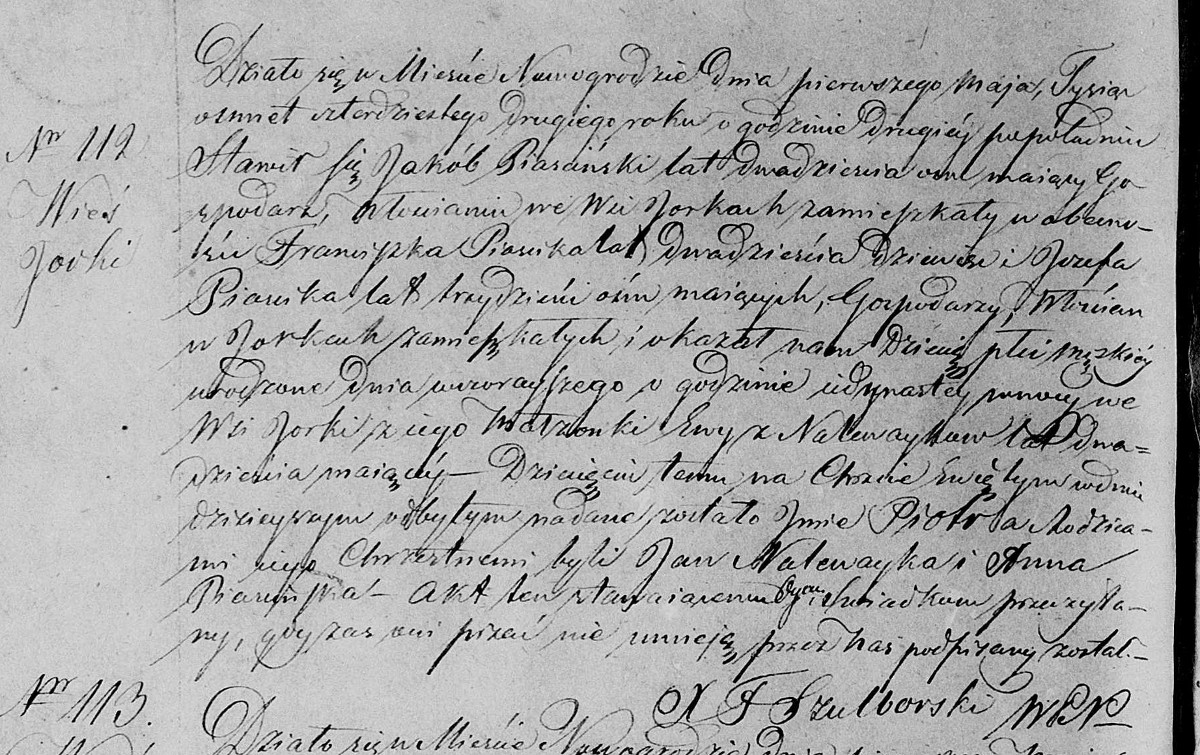 Nr 112
Wieś
Jorki
Działo się w Mieście Nowogrodzie dnia pierwszego Maja, Tysiąc
osmset czterdziestego drugiego roku o godzinie drugiéj popołudniu
Stawił się Jakób Piasciński lat dwadzieścia osm maiący Go
spodarz, Włościanin we Wsi Jorkach zamieszkały w obecno-
ści Franciszka Piascika lat dwadzieścia dziewięć i Józefa
Piascika lat trzydzieści ośm maiących, Gospodarzy, Włościan
w Jorkach zamieszkałych, i okazał nam Dziecię płci męzkiéj
urodzone dnia wczorayszego o godzinie iedynastey w nocy we
Wsi Jorki z iego Małżonki Ewy z Nalewayków lat dwa=
dzieścia maiącéj – Dziecięciu temu na Chrzcie Świętym w dniu
dzisieyszym odbytym nadane zostało Jmie Piotr a Rodzica-
mi iego Chrzestnemi byli Jan Nalewayka i Anna
Piascińska – Akt ten stawaiącemu Oycu, i Świadkom przeczyta-
ny, gdy zas oni pisać nie umieją, przez Nas podpisany został. –
X F Szulborski
Nr 113.
Działo się w Mieście Nowogrodzie dnia